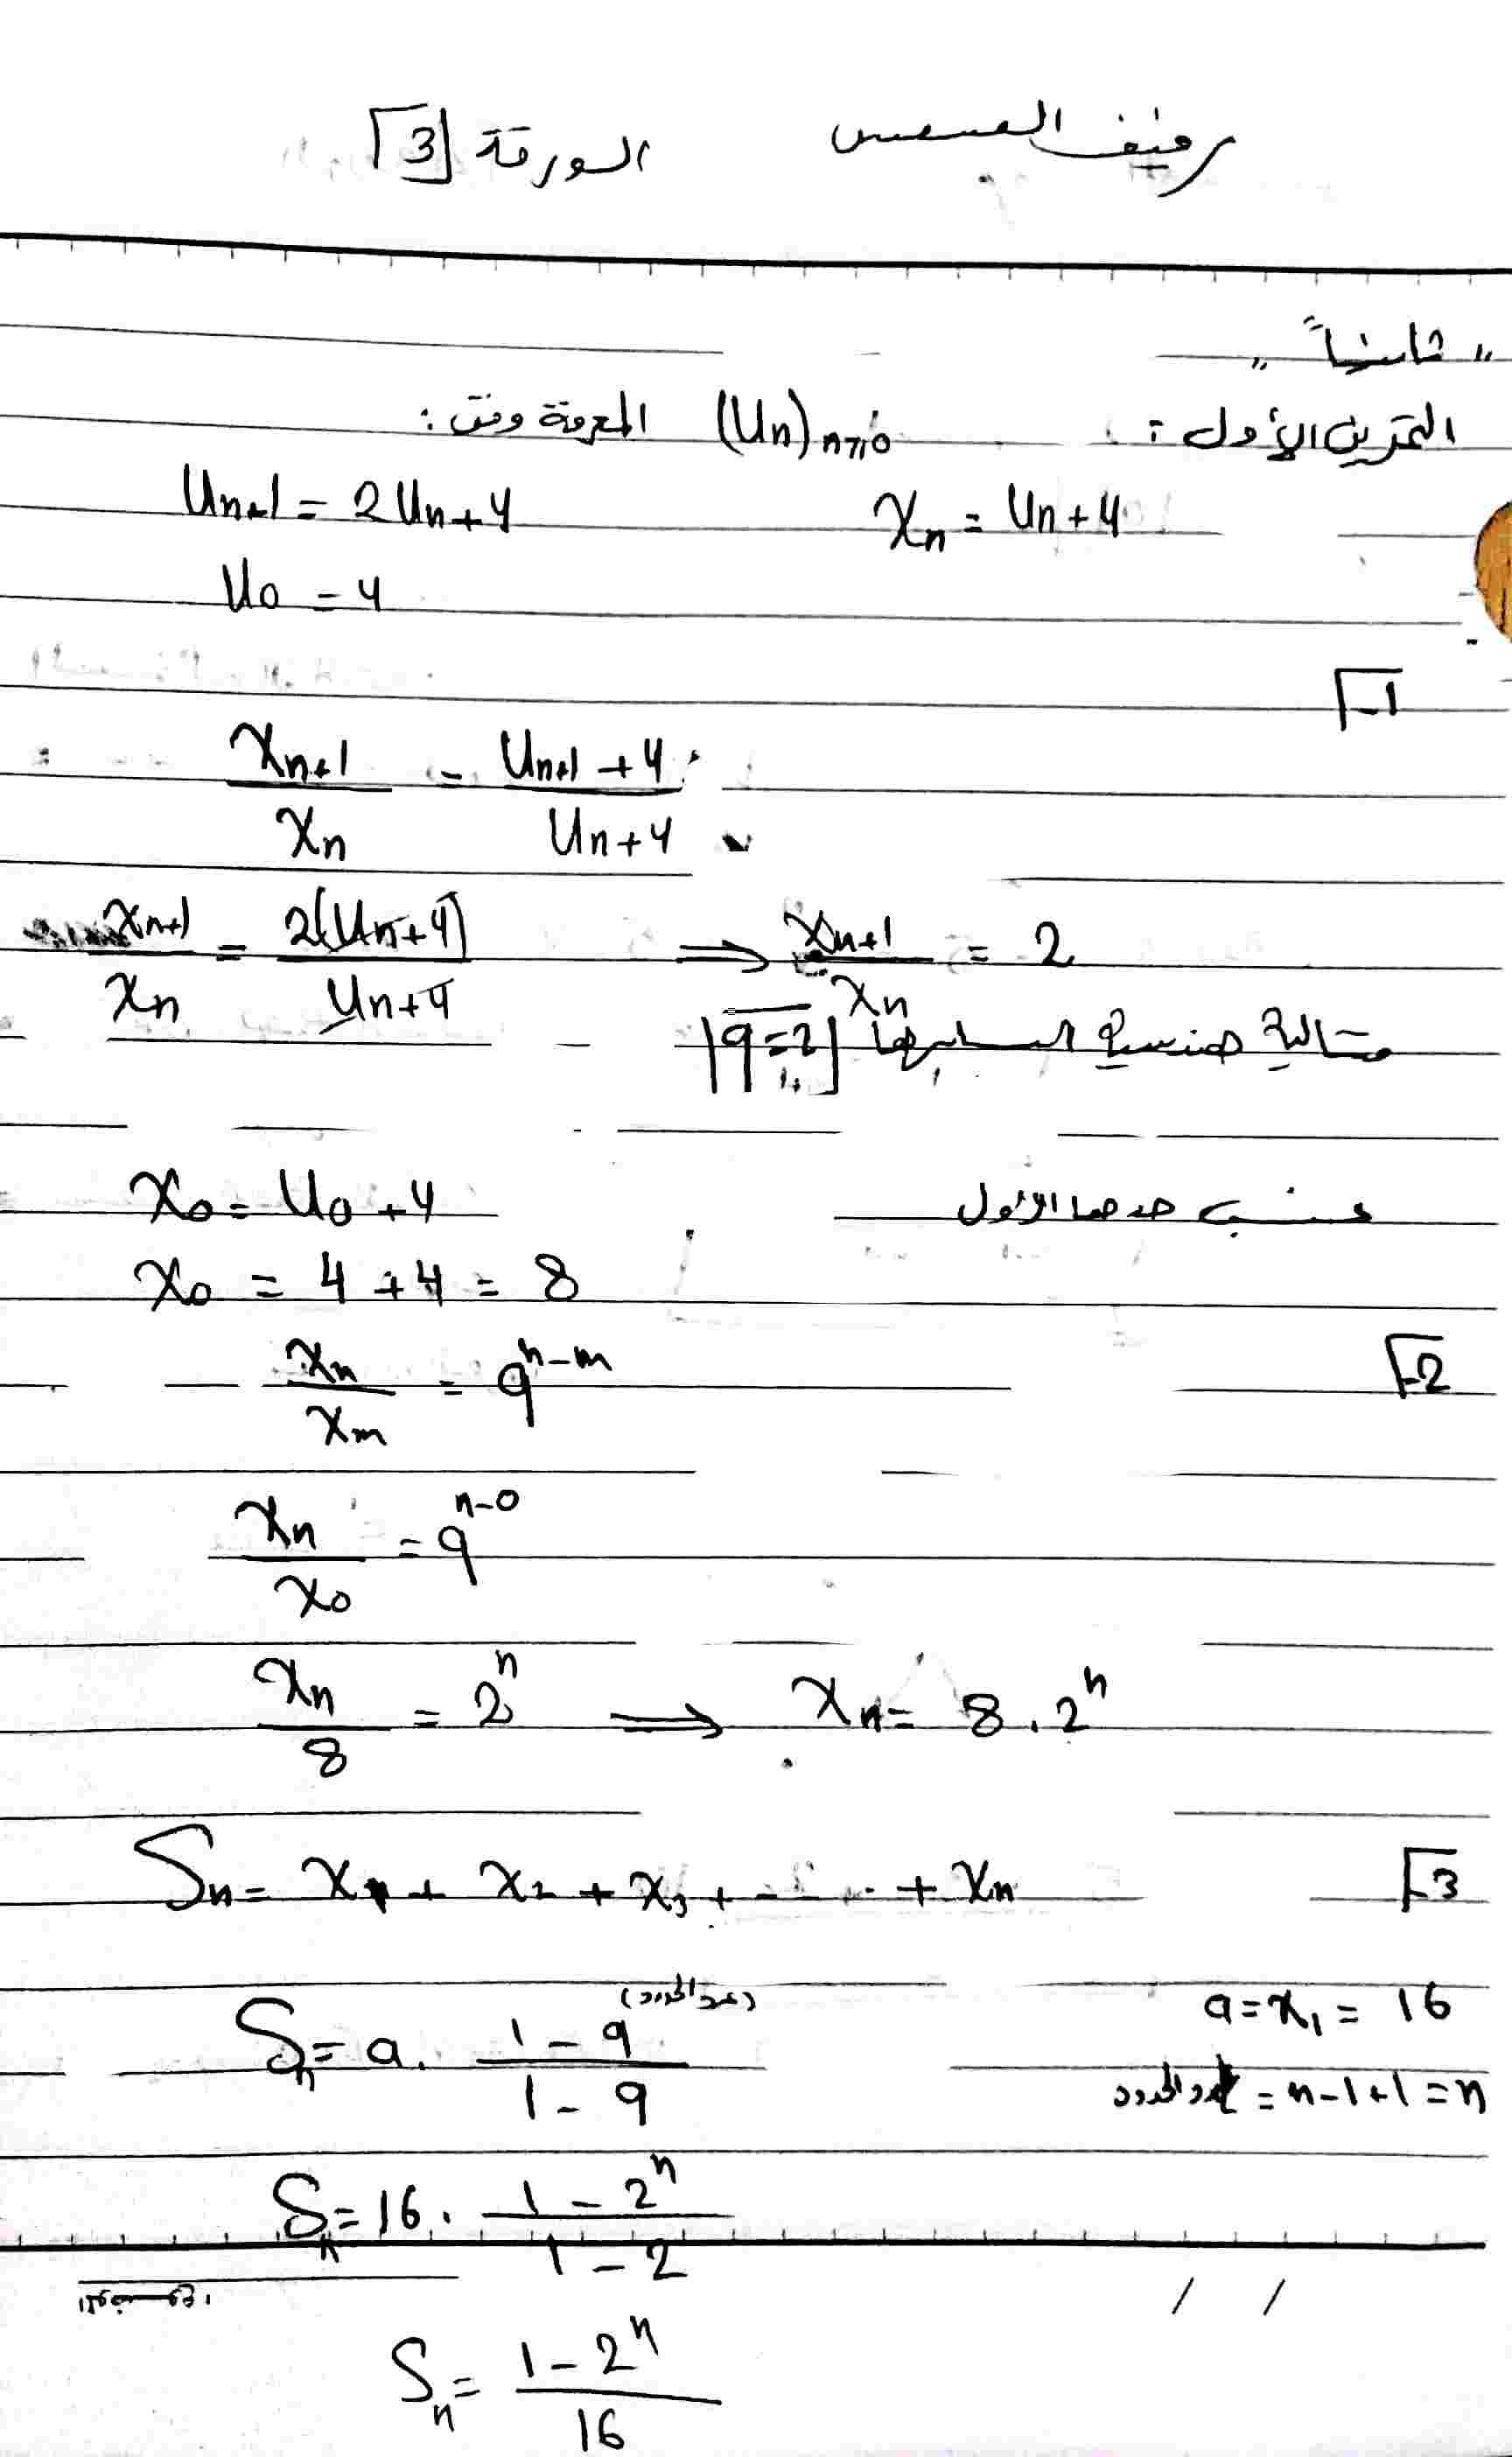 الورقة [3]
"ثانياً"
التمرين الأول: (Un)n≥0 المعرفة وفق:
Un+1 = 2Un+4    xn = Un+4
U0 = 4
1-
xn+1/xn = Un+1 + 4 / Un+4
xn+1/xn = 2(Un+4)/Un+4 ⇒ xn+1/xn = 2
متتالية هندسية أساسها q=2
x0 = U0 + 4    نحسب حدها الأول
x0 = 4 + 4 = 8
2- xn/xm = q^n-m
xn/x0 = q^n-0
xn/8 = 2^n ⇒ xn = 8 . 2^n
3- Sn = x1 + x2 + x3 + ..... + xn
Sn = a . 1 - q^(عدد الحدود) / 1 - q    a = x1 = 16
عدد الحدود = n-1+1 = n
Sn = 16 . 1 - 2^n / 1 - 2
/ /
Sn = 1 - 2^n / 16